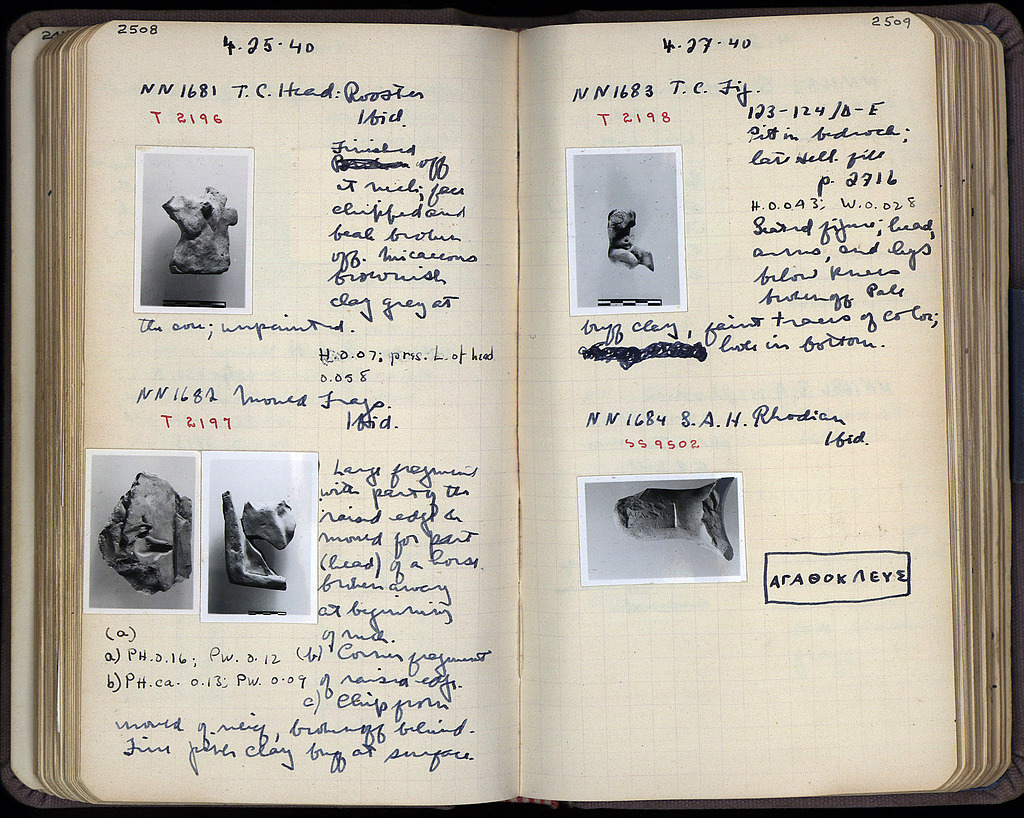 2508
4·25·40
NN 1681 T.C. Head: Rooster
T 2196
Ibid.
Finished
off
at neck; face
chipped and
beak broken
off. Micaceous
brownish
clay grey at
the core; unpainted.
H. 0.07; pres. L. of head
0.058
NN 1682 Mould Frags.
T 2197
Ibid.
Large fragment
with part of the
raised edge &
mould for part
(head) of a horse
broken away
at beginning
of neck.
(a)
a) PH. 0.16; PW. 0.12 (b) Corner fragment
b) PH. ca. 0.13; PW. 0.09 of raised edge.
c) Chip from
mould of neck, broken off behind.
Fine clay buff at surface.
2509
4·27·40
NN 1683 T.C. Fig.
T 2198
123-124/Δ-E
Pit in bedrock;
late Hell. fill
p. 2716
H. 0.043; W. 0.028
Seated figure; head,
arms, and legs
below knees
broken off Pale
buff clay, faint traces of color;
hole in bottom.
NN 1684 S.A.H. Rhodian
SS 9502
Ibid.
ΑΓΑΘΟΚΛΕΥΣ